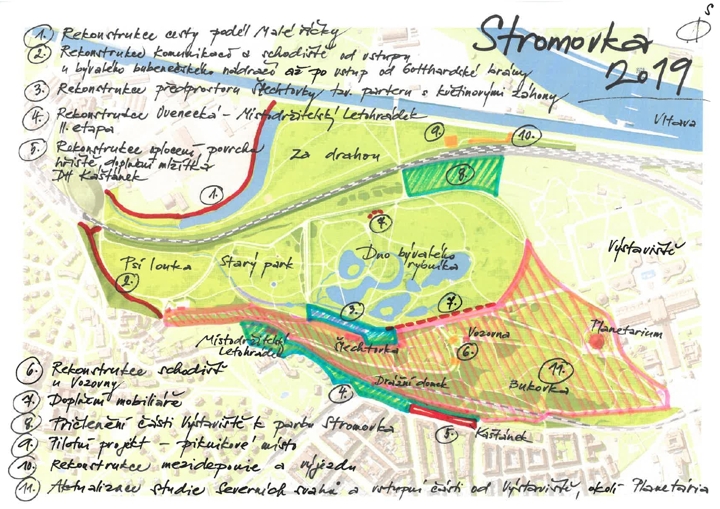 S
Stromovka
2019
1. Rekonstrukce cesty podél Malé říčky
2. Rekonstrukce komunikací a schodiště od vstupu
u bývalého bubenečského nádraží až po vstup od Gotthardské brány
3. Rekonstrukce předprostoru Šlechtovky tzv. parteru s květinovými záhony
4. Rekonstrukce Ovenecká - Místodržitelský Letohrádek
II. etapa
5. Rekonstrukce oplocení, povrchu
hřiště, doplnění mlžítka
DH Kaštánek
Vltava
9.
10.
Za drahou
8.
1.
7.
Výstaviště
Psí louka
Starý park
Dno bývalého
rybníka
2.
3.
7.
Vozovna
Planetarium
Místodržitelský
Letohrádek
Šlechtovka
6.
11.
Dražní domek
Bukovka
4.
5.
Kaštánek
6. Rekonstrukce schodiště
u Vozovny
7. Doplnění mobiliáře
8. Přičlenění části Výstaviště k parku Stromovka
9. Pilotní projekt - piknikové místo
10. Rekonstrukce mezideponie a výjezdu
11. Aktualizace studie severních svahů a vstupní části od Výstaviště, okolí Planetária